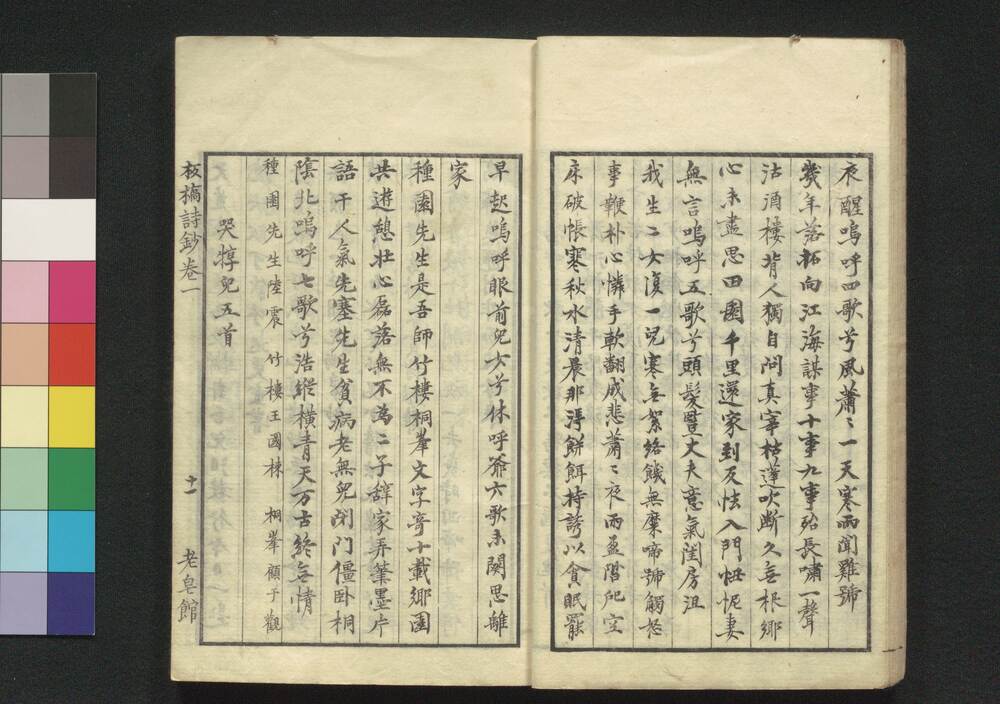 夜醒嗚呼四歌兮風蕭〻一天寒雨聞雞號
幾年落拓向江海謀事十事九事殆長嘯一聲
沽酒樓背人獨自問真宰枯蓬吹斷久无根鄉
心未盡思田園千里還家到反怯入門忸怩妻
無言嗚呼五歌兮頭髮豎丈夫意氣閨房沮
我生二女復一兒寒无絮絡饑無糜啼號觸怒
事鞭朴心憐手軟翻成悲蕭〻夜雨盈階戺空
床破帳寒秋水清晨那得餅餌持誘以貪眠罷
早起嗚呼眼前兒女兮休呼爺六歌未闋思離
家
種園先生是吾師竹樓桐峯文字奇十載鄉園
共遊憩壯心磊落無不為二子辭家弄筆墨片
語干人氣先塞先生貧病老無兒閉門僵卧桐
陰北嗚呼七歌兮浩縱橫青天万古終无情
種園先生陸震 竹樓王國棟 桐峯顧于觀
哭犉兒五首
板橋詩鈔卷一 十一 老皂館